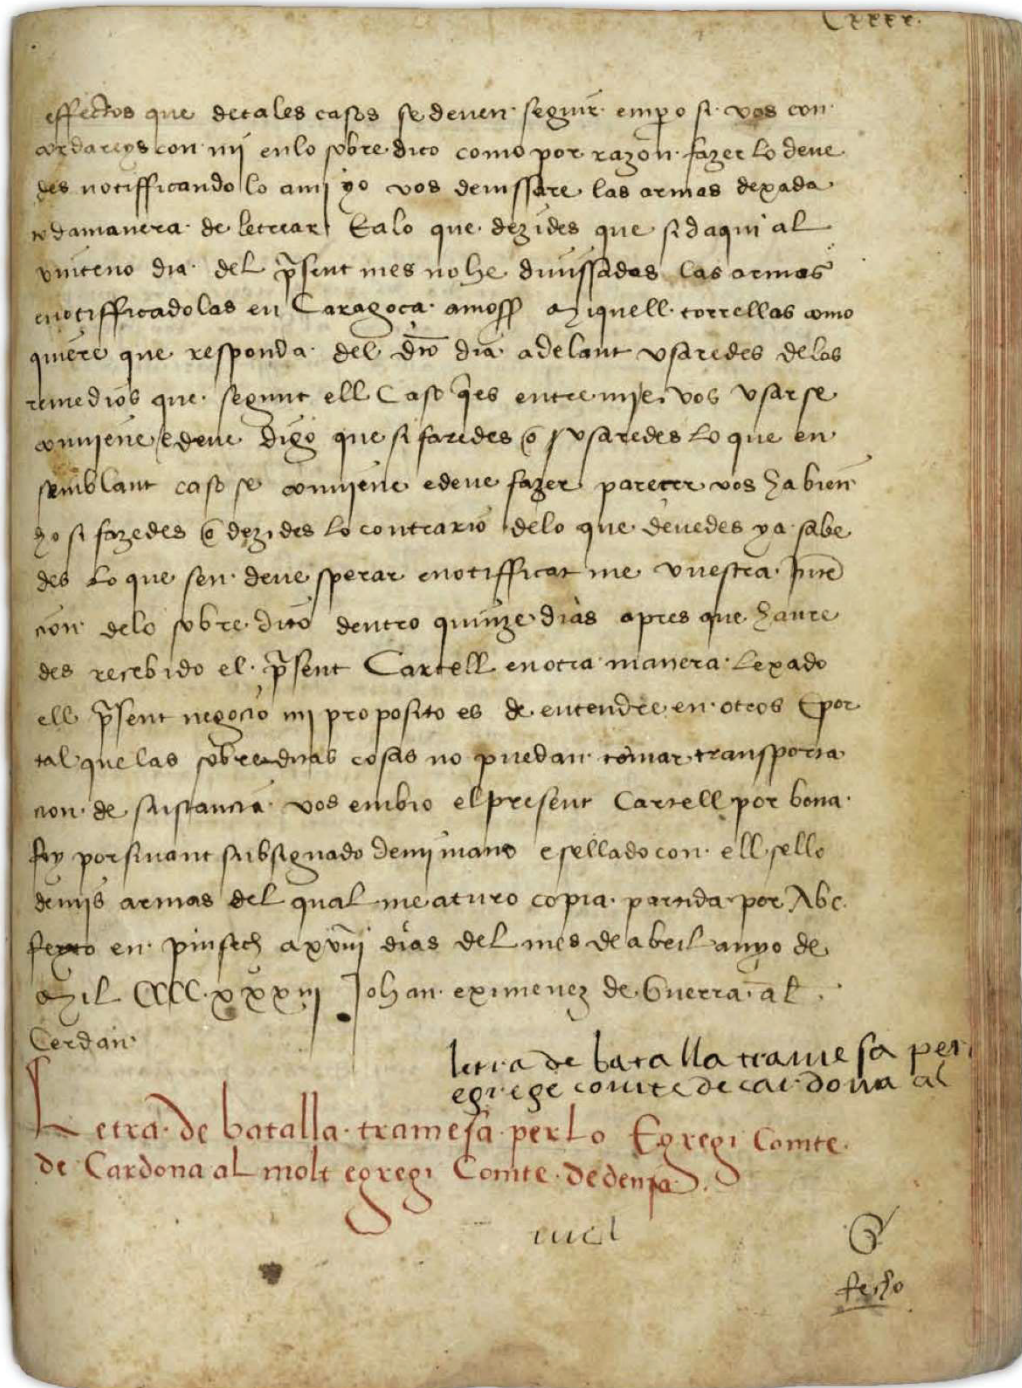 Cxxxx.
effectos que de tales casos se deven seguir emp̱o si vos con
cordareys con mi en lo sobre dito como por razon fazer lo deve
des notifficando lo ami yo vos devissare las armas dexada
todamanera de letrear E alo que dezides que si daqui al
vinteno dia del p̃sent mes no he divissadas las armas
enotifficadolas en Caragoca amoss̃ Miquell torrellas como
quiere que responda del dito dia adelant usaredes delos
remedios que segunt ell Caso q̃es entre mi e vos usar se
conviene e deve digo que si faredes o usaredes lo que en
semblant caso se conviene e deve fazer parecer vos ha bien
ho si fazedes o dezides lo contrario delo que devedes ya sabe
des lo que sen deve sperar enotifficat me vuestra inten
cion delo sobre dito dentro quinze dias apres que havre
des recebido el p̃sent Cartell en otra manera lexado
ell p̃sent negocio mi proposito es de entendre en otros E por
tal que las sobreditas cosas no puedan tomar transporta
cion de sustancia vos embio el present Cartell por bona
fey porsivant subsignado de mi mano e sellado con ell sello
demis armas del qual me aturo copia partida por Abc.
ferto en pinsech a xxviii dias del mes de abril anyo de
Mil CCCC xxxiii Johan eximenez de Guerra al
Cerdan
letra de batalla tramesa per
egrege comte de cardona al
Letra de batalla tramesa per lo Egregi Comte
de Cardona al molt egregi Comte de denia.
fecho